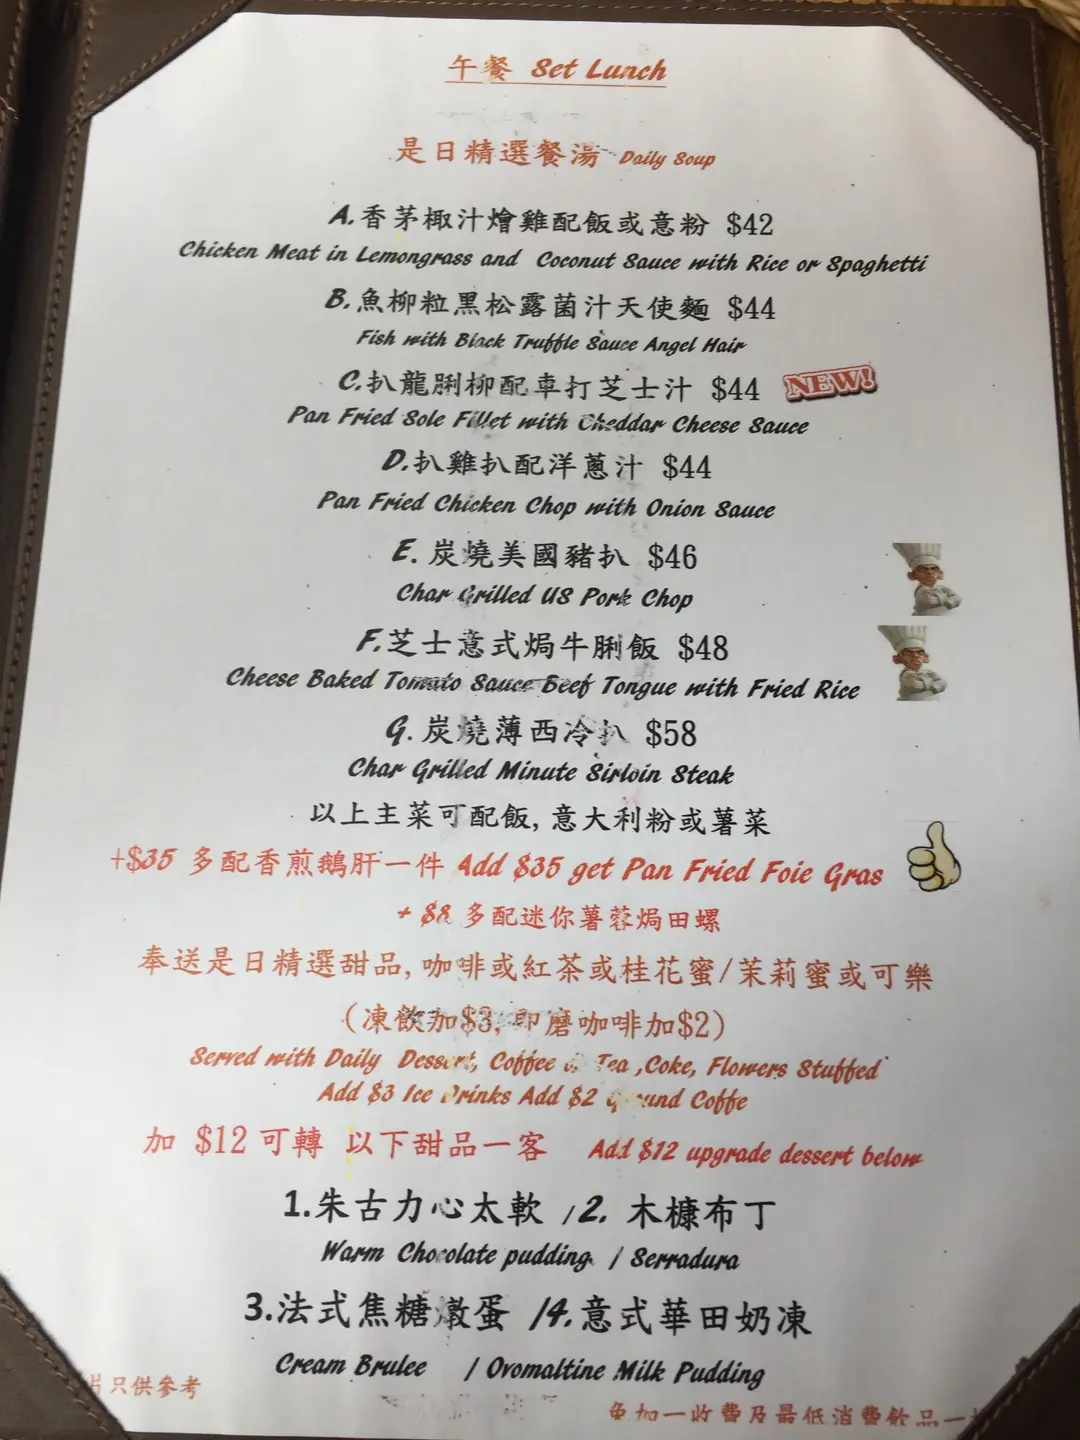 午餐 Set Lunch
是日精選餐湯 Daily Soup
A.香茅椰汁燴雞配飯或意粉 $42
Chicken Meat in Lemongrass and Coconut Sauce with Rice or Spaghetti
B.魚柳粒黑松露菌汁天使麵 $44
Fish with Black Truffle Sauce Angel Hair
C.扒龍脷柳配車打芝士汁 $44 NEW!
Pan Fried Sole Fillet with Cheddar Cheese Sauce
D.扒雞扒配洋蔥汁 $44
Pan Fried Chicken Chop with Onion Sauce
E. 炭燒美國豬扒 $46
Char Grilled US Pork Chop
F.芝士意式焗牛脷飯 $48
Cheese Baked Tomato Sauce Beef Tongue with Fried Rice
G. 炭燒薄西冷扒 $58
Char Grilled Minute Sirloin Steak
以上主菜可配飯, 意大利粉或薯菜
+$35 多配香煎鵝肝一件 Add $35 get Pan Fried Foie Gras
+ $8 多配迷你薯蓉焗田螺
奉送是日精選甜品, 咖啡或紅茶或桂花蜜/茉莉蜜或可樂
(凍飲加$3, 即磨咖啡加$2)
Served with Daily Dessert, Coffee Tea ,Coke, Flowers Stuffed
Add $3 Ice Drinks Add $2 Ground Coffe
加 $12 可轉 以下甜品一客 Add $12 upgrade dessert below
1.朱古力心太軟 /2. 木糠布丁
Warm Chocolate pudding / Serradura
3.法式焦糖燉蛋 /4.意式華田奶凍
Cream Brulee / Ovomaltine Milk Pudding
片只供參考
免加一收費及最低消費飲品一